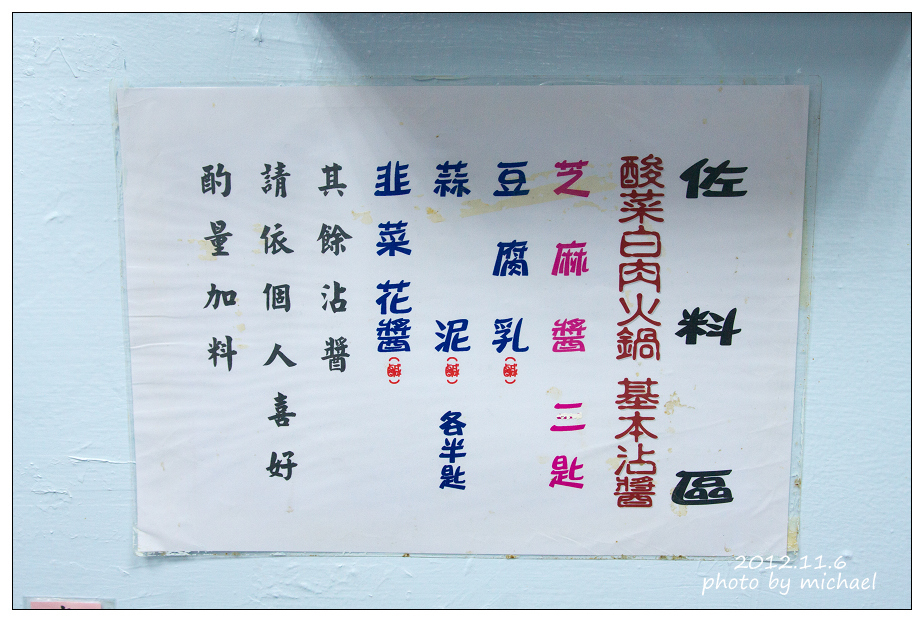 佐料區
酸菜白肉火鍋 基本沾醬
芝麻醬二匙
豆腐乳
蒜泥 各半匙
韭菜花醬
其餘沾醬
請依個人喜好
酌量加料
2012.11.6
photo by michael